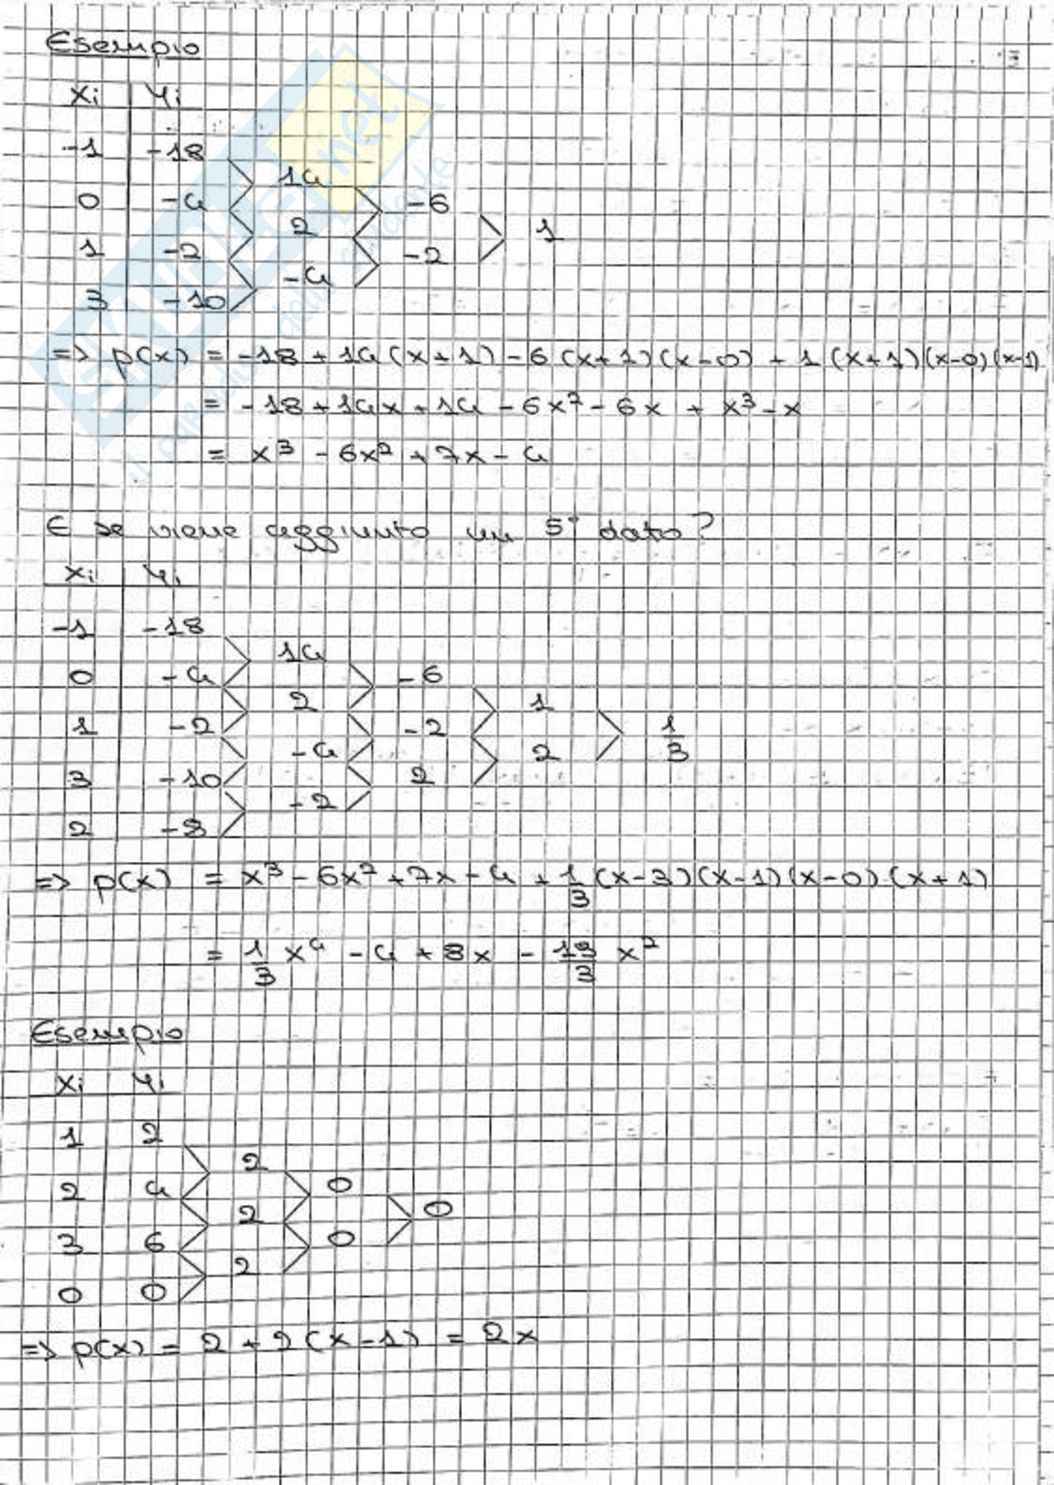 Esempio
xi yi
-1 -18
14
0 -4 -6
2 1
1 -2 -2
-4
3 -10
=> p(x) = -18 + 14 (x+1) - 6 (x+1) (x-0) + 1 (x+1) (x-0) (x-1)
= -18 + 14x + 14 - 6x² - 6x + x³ - x
= x³ - 6x² + 7x - 4
E se viene aggiunto un 5° dato?
xi yi
-1 -18
14
0 -4 -6
2 1
1 -2 -2 1/3
-4 2
3 -10 2
-2
2 -8
=> p(x) = x³ - 6x² + 7x - 4 + 1/3 (x-3) (x-1) (x-0) (x+1)
= 1/3 x⁴ - 4 + 8x - 19/3 x²
Esempio
xi yi
1 2
2
2 4 0
2 0
3 6 0
2
0 0
=> p(x) = 2 + 2 (x-1) = 2x